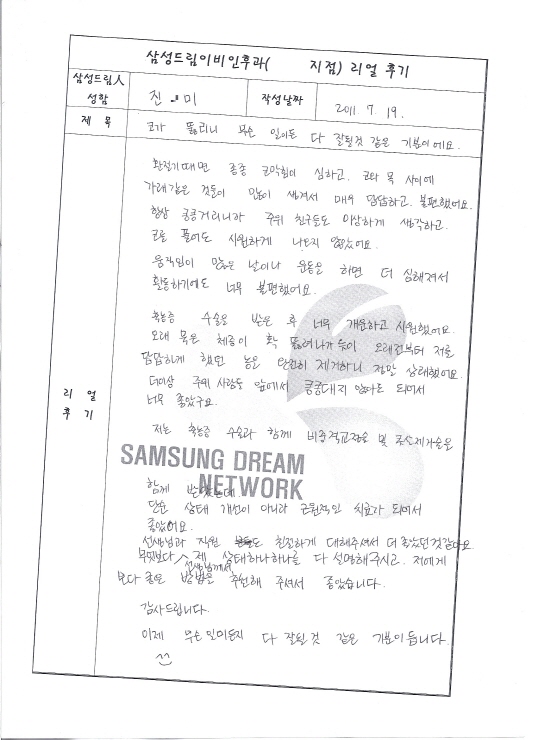 삼성드림이비인후과( 지점) 리얼 후기
삼성드림人 성함
진 미
작성날짜
2011. 7. 19.
제 목
코가 뚫리니 무슨 일이든 다 잘될것 같은 기분이에요.
리 얼 후 기
환절기때면 종종 코막힘이 심하고, 코와 목 사이에
가래같은 것들이 많이 생겨서 매우 답답하고, 불편했어요.
항상 킁킁거리니까 주위 친구들도 이상하게 생각하고.
코를 풀어도 시원하게 나오지 않았어요.
움직임이 많은 날이나 운동을 하면 더 심해져서
활동하기에도 너무 불편했어요.
축농증 수술을 받은 후 너무 개운하고 시원했어요.
오래 묵은 체증이 확 뚫려나가듯이 오래전부터 저를
답답하게 했던 농을 완전히 제거하니 정말 상쾌했어요.
더이상 주위 사람들 앞에서 킁킁대지 않아도 되어서
너무 좋았구요.
저는 축농증 수술과 함께 비중격교정술 및
SAMSUNG DREAM
NETWORK
함께 받았는데
단순 상태 개선이 아니라 근원적인 치료가 되어서
좋았어요.
선생님과 직원 분들도 친절하게 대해주셔서 더 좋았던것같아요
무엇보다 선생님께서 제 상태하나하나를 다 설명해주시고, 저에게
보다 좋은 방법을 추천해 주셔서 좋았습니다.
감사드립니다.
이제 무슨일이든지 다 잘될것 같은 기분이 듭니다.
^^